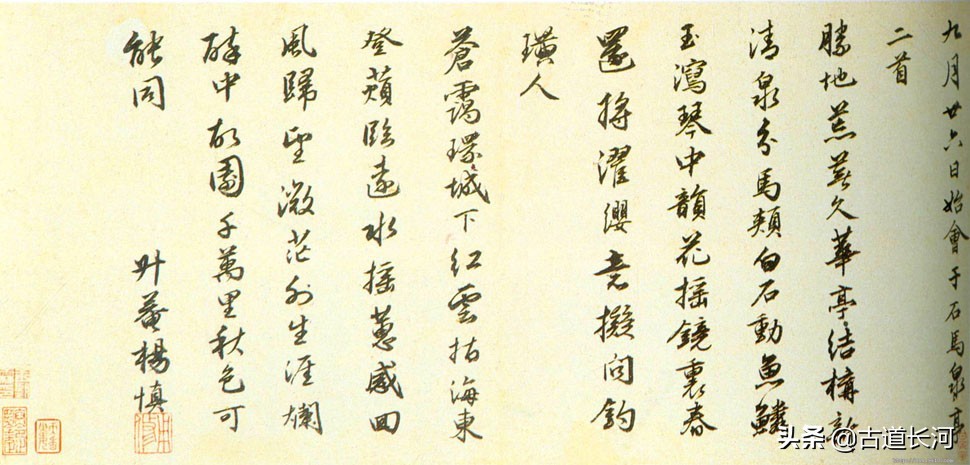 九月廿六日始會于石馬泉亭
二首
勝地荒蕪久華亭結構新
清泉分馬頰白石動魚鱗
玉瀉琴中韻花搖鏡裏春
還將濯纓意擬問釣
璜人
蒼靄環城下紅雲指海東
登蘋臨遠水搖蕙感回
風歸望微茫外生涯爛
醉中故園千萬里秋色可
能同
升菴楊慎
头条 @古道长河